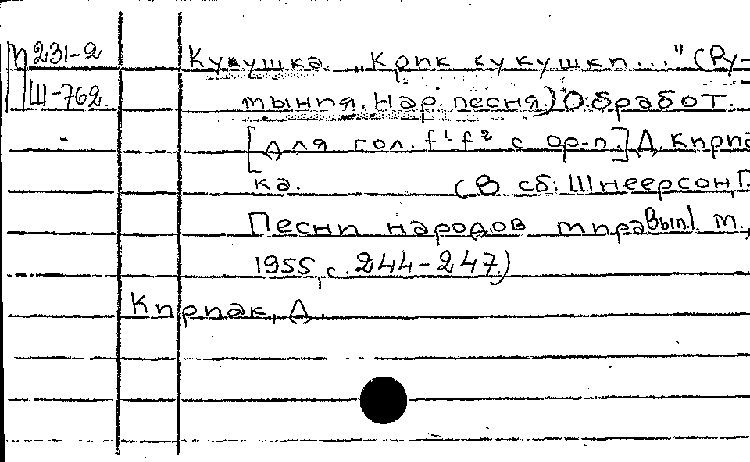 П 231-2
Ш-762
Кукушка. „Крик кукушки..." (Ру-
мыния. Нар. песня) Обработ.
[Для гол. f¹-f² с ор-п.] Д. Кирпа
ка. (В сб: Шнеерсон, Г.
Песни народов мира Вып.1 М.,
1955, с. 244-247.)
Кирпак, Д.